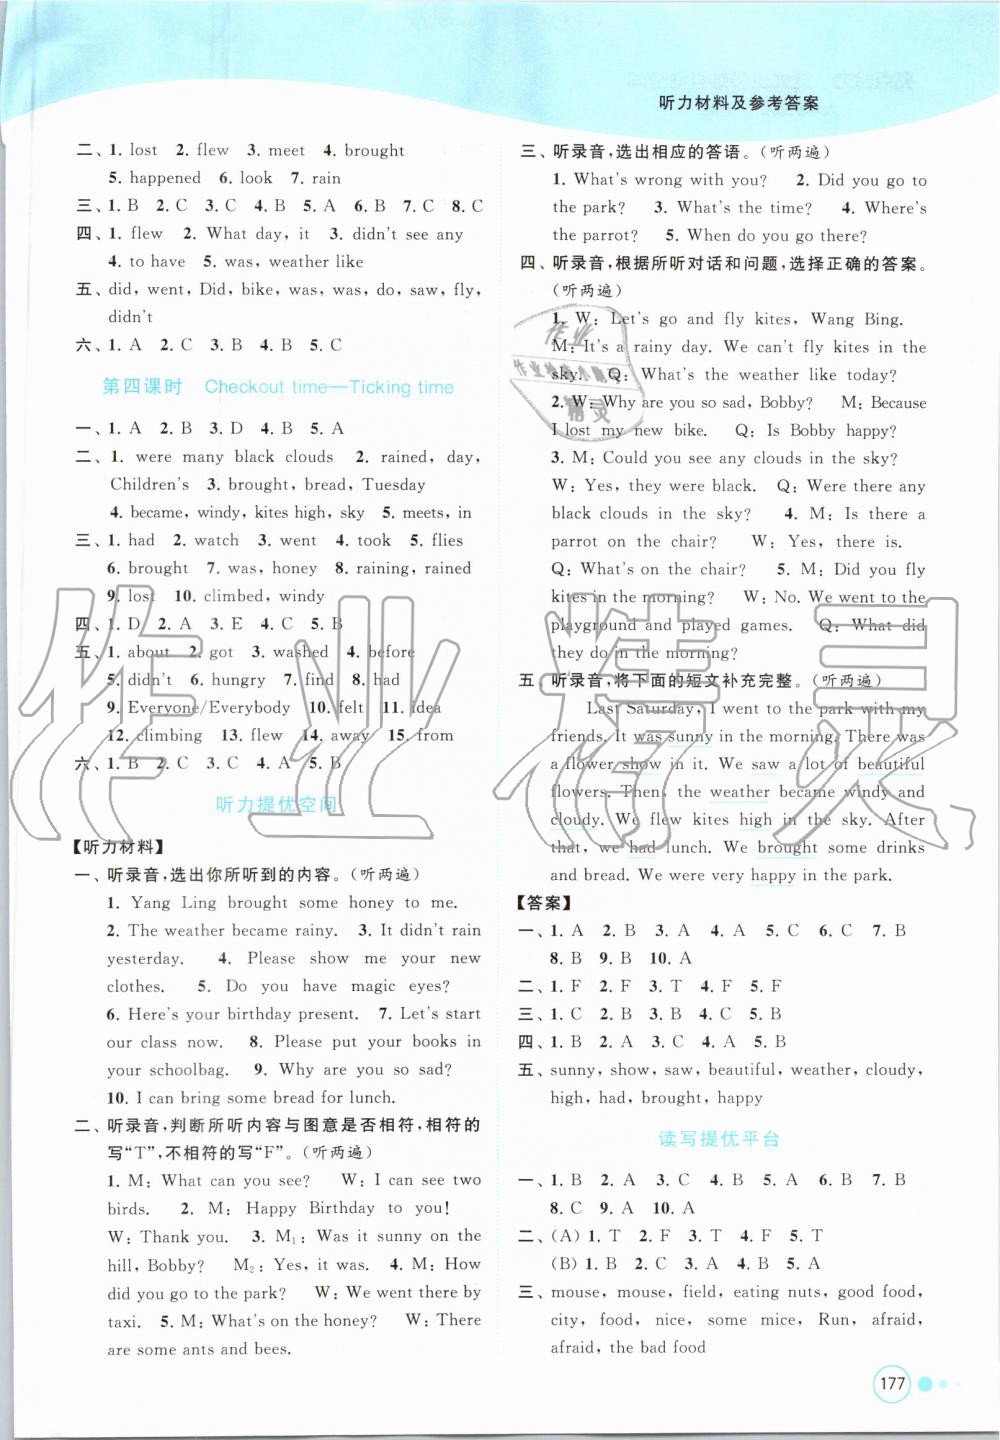 听力材料及参考答案
二、1. lost 2. flew 3. meet 4. brought
5. happened 6. look 7. rain
三、1. B 2. C 3. C 4. B 5. A 6. B 7. C 8. C
四、1. flew 2. What day, it 3. didn't see any
4. to have 5. was, weather like
五、did, went, Did, bike, was, was, do, saw, fly,
didn't
六、1. A 2. C 3. B 4. B 5. C
第四课时 Checkout time—Ticking time
一、1. A 2. B 3. D 4. B 5. A
二、1. were many black clouds 2. rained, day,
Children's 3. brought, bread, Tuesday
4. became, windy, kites high, sky 5. meets, in
三、1. had 2. watch 3. went 4. took 5. flies
6. brought 7. was, honey 8. raining, rained
9. lost 10. climbed, windy
四、1. D 2. A 3. E 4. C 5. B
五、1. about 2. got 3. washed 4. before
5. didn't 6. hungry 7. find 8. had
9. Everyone/Everybody 10. felt 11. idea
12. climbing 13. flew 14. away 15. from
六、1. B 2. C 3. C 4. A 5. B
听力提优空间
【听力材料】
一、听录音,选出你所听到的内容。(听两遍)
1. Yang Ling brought some honey to me.
2. The weather became rainy. 3. It didn't rain
yesterday. 4. Please show me your new
clothes. 5. Do you have magic eyes?
6. Here's your birthday present. 7. Let's start
our class now. 8. Please put your books in
your schoolbag. 9. Why are you so sad?
10. I can bring some bread for lunch.
二、听录音,判断所听内容与图意是否相符,相符的
写“T”,不相符的写“F”。(听两遍)
1. M: What can you see? W: I can see two
birds. 2. M: Happy Birthday to you!
W: Thank you. 3. M₁: Was it sunny on the
hill, Bobby? M₂: Yes, it was. 4. M: How
did you go to the park? W: We went there by
taxi. 5. M: What's on the honey? W: There
are some ants and bees.
三、听录音,选出相应的答语。(听两遍)
1. What's wrong with you? 2. Did you go to
the park? 3. What's the time? 4. Where's
the parrot? 5. When do you go there?
四、听录音,根据所听对话和问题,选择正确的答案。
(听两遍)
1. W: Let's go and fly kites, Wang Bing.
M: It's a rainy day. We can't fly kites in the
sky. Q: What's the weather like today?
2. W: Why are you so sad, Bobby? M: Because
I lost my new bike. Q: Is Bobby happy?
3. M: Could you see any clouds in the sky?
W: Yes, they were black. Q: Were there any
black clouds in the sky? 4. M: Is there a
parrot on the chair? W: Yes, there is.
Q: What's on the chair? 5. M: Did you fly
kites in the morning? W: No. We went to the
playground and played games. Q: What did
they do in the morning?
五、听录音,将下面的短文补充完整。(听两遍)
Last Saturday, I went to the park with my
friends. It was sunny in the morning. There was
a flower show in it. We saw a lot of beautiful
flowers. Then, the weather became windy and
cloudy. We flew kites high in the sky. After
that, we had lunch. We brought some drinks
and bread. We were very happy in the park.
【答案】
一、1. A 2. B 3. A 4. A 5. C 6. C 7. B
8. B 9. B 10. A
二、1. F 2. F 3. T 4. F 5. F
三、1. C 2. B 3. B 4. C 5. B
四、1. B 2. A 3. C 4. A 5. B
五、sunny, show, saw, beautiful, weather, cloudy,
high, had, brought, happy
读写提优平台
一、1. B 2. A 3. C 4. B 5. A 6. B 7. B
8. C 9. A 10. A
二、(A) 1. T 2. F 3. T 4. F 5. T
(B) 1. B 2. C 3. A 4. B 5. A
三、mouse, mouse, field, eating nuts, good food,
city, food, nice, some mice, Run, afraid,
afraid, the bad food
177
作业精灵
作业
作业检查小助手
精灵